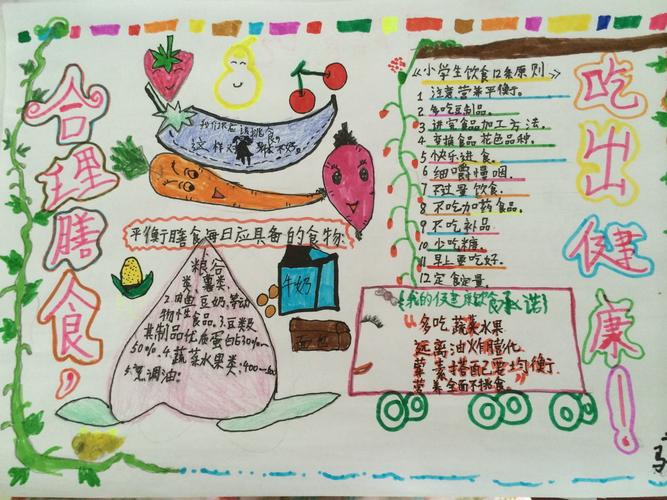 合理膳食,
我们不应该挑食,
这样对身体不好。
平衡膳食每日应具备的食物:
粮谷
类、薯类
2.由鱼豆奶,等动
物性食品。3.豆类及
其制品优质蛋白630%—
50%。4.蔬菜水果类:400—
5.烹调油。
牛奶
《小学生饮食12条原则》
1 注意营养平衡。
2 多吃豆制品。
3 进宜食品加工方法。
4 变换食品花色品种。
5 快乐进食。
6 细嚼慢咽。
7 不过量饮食。
8 不吃加药食品。
9 不吃补品
10 少吃糖。
11 早上要吃好。
12 定食定量。
我的健康饮食承诺!
多吃蔬菜水果
远离油炸膨化
荤素搭配要均衡
营养全面不挑食。
吃出健康!